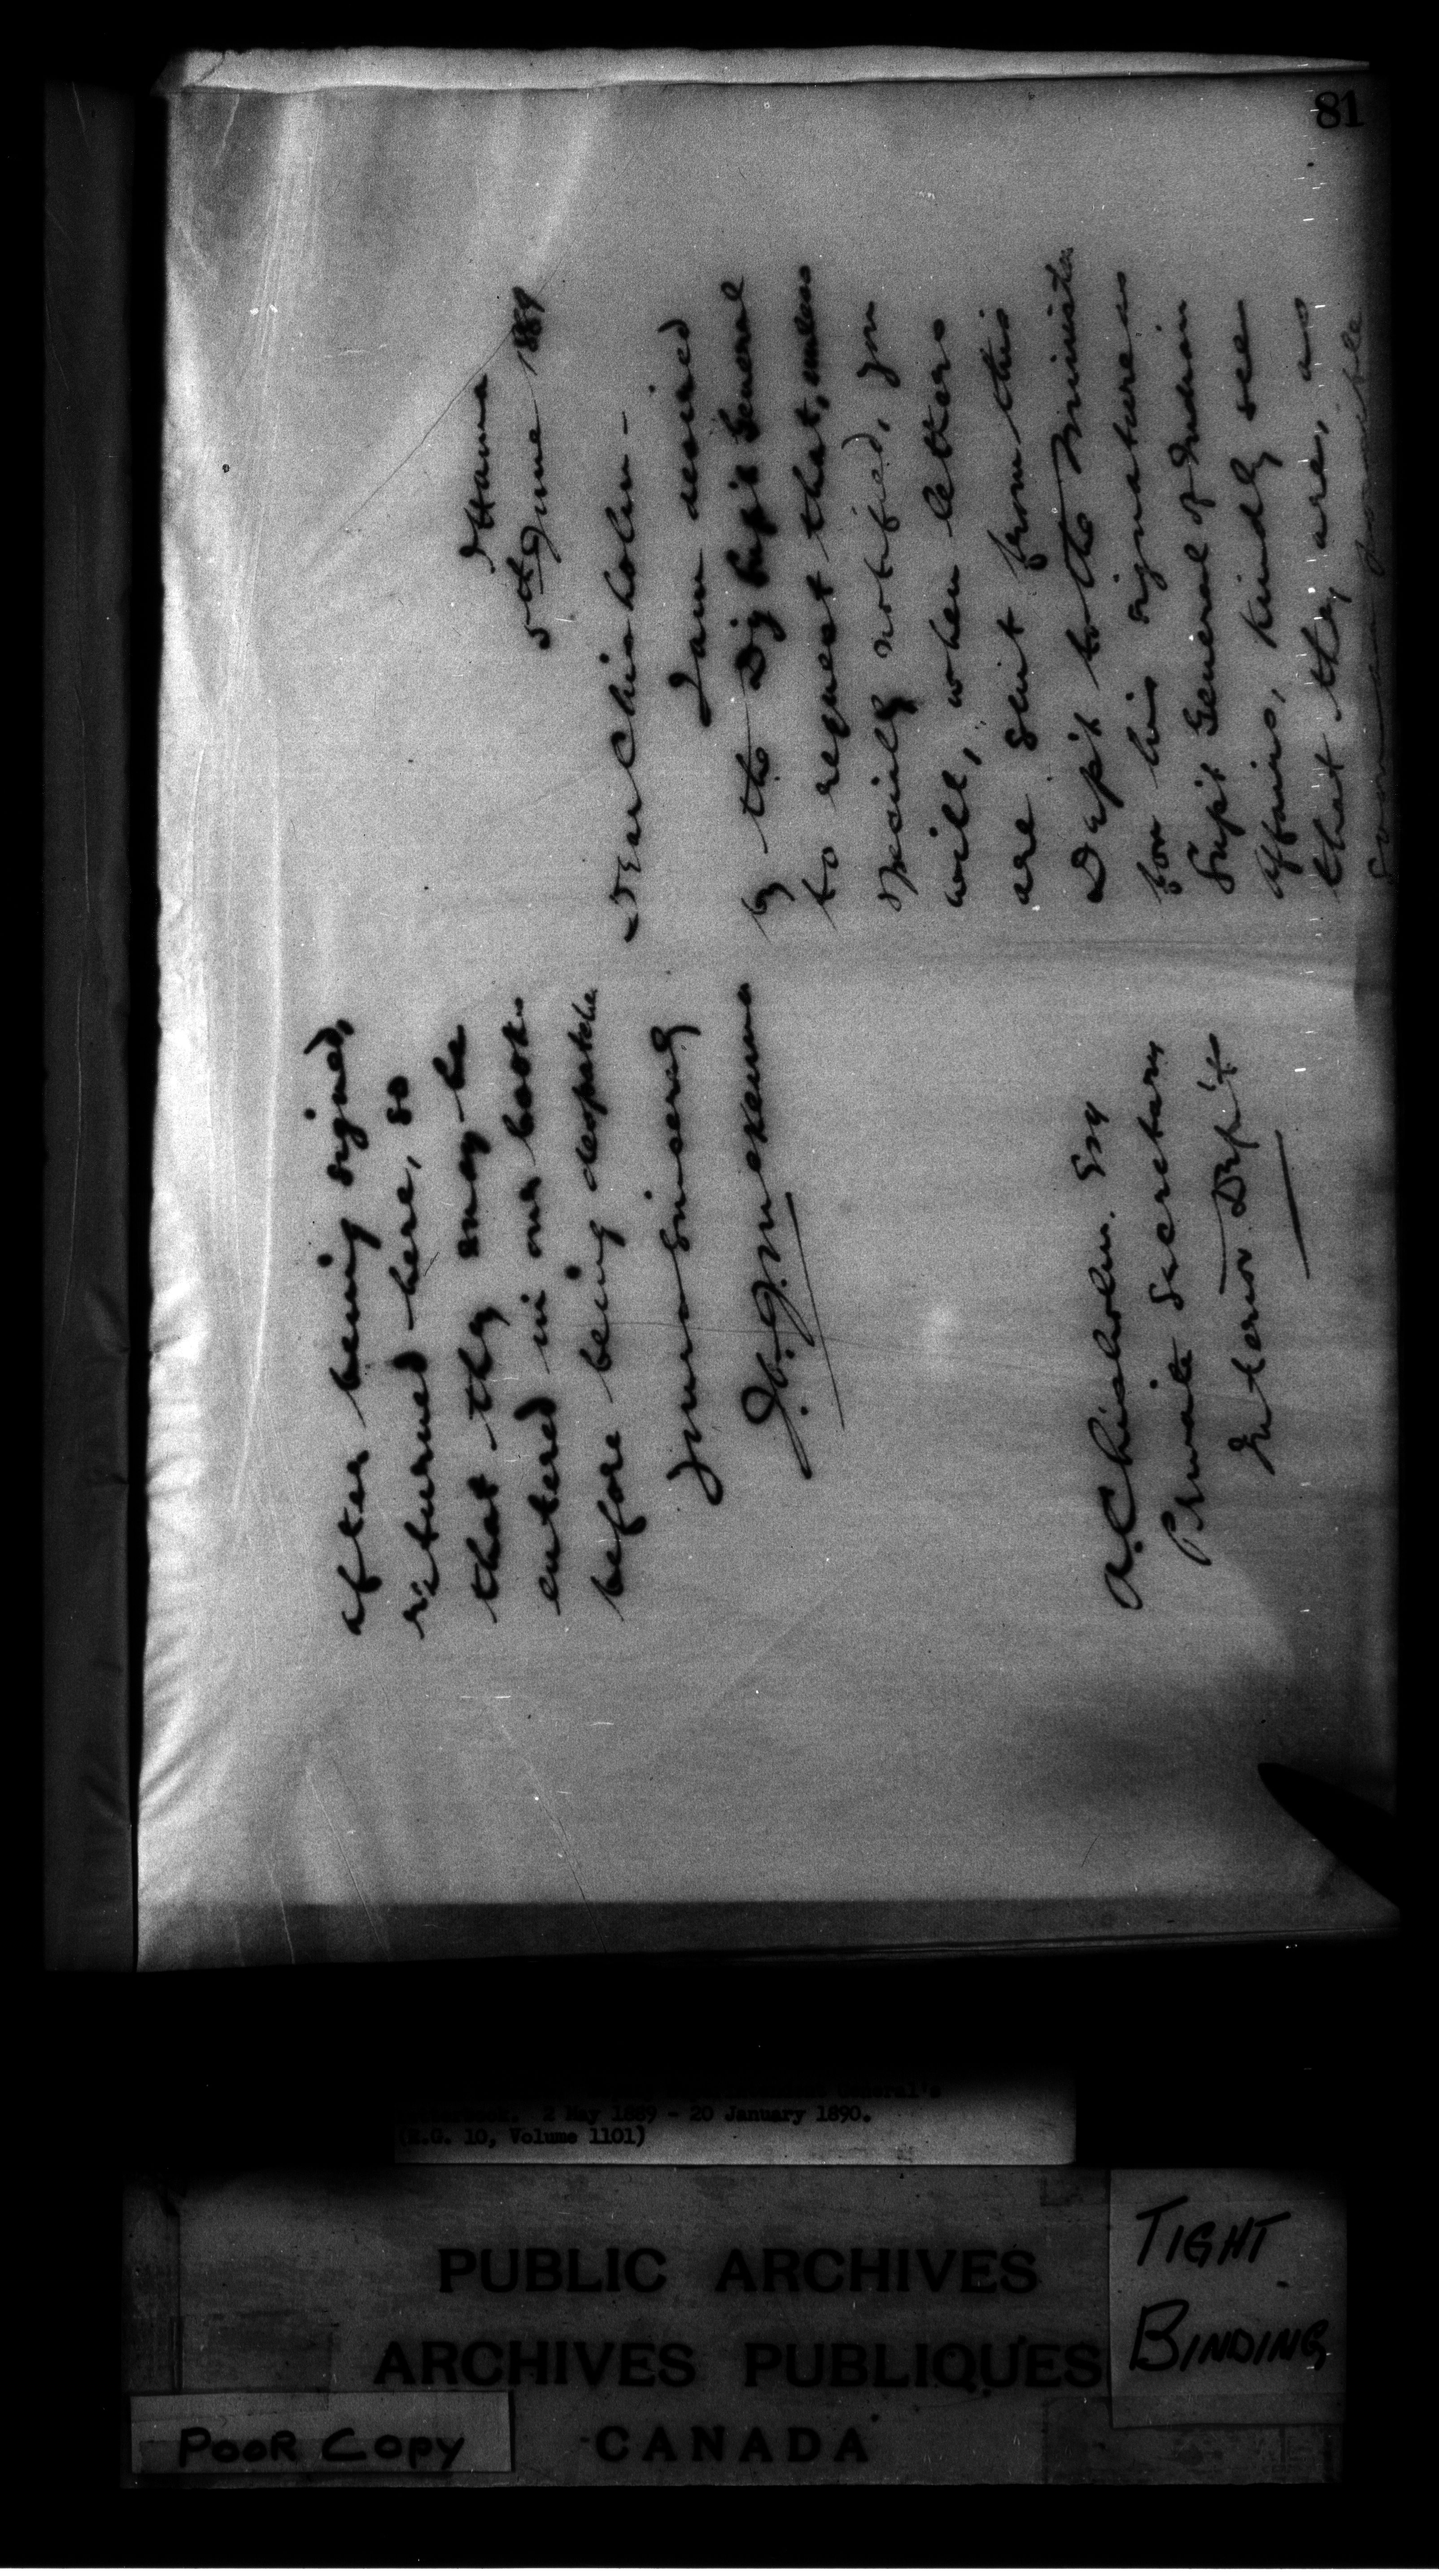 81
Ottawa
5th June 1889
Dear Chisholm -
I am desired
by the Dy Supt General
to request that, unless
specially notified, you
will, when letters
are sent from this
Dept to the Minister
for his signature as
Supt General of Indian
Affairs, kindly see
that they are, as
soon as possible
after being signed,
returned here, so
that they may be
entered in our books
before being despatche
Yours sincerely
A. Chisholm. Esq
Private Secretary
Interior Dept
General's
2 May 1889 - 20 January 1890.
(R.G. 10, Volume 1101)
PUBLIC ARCHIVES
ARCHIVES PUBLIQUES
CANADA
TIGHT
BINDING
POOR COPY